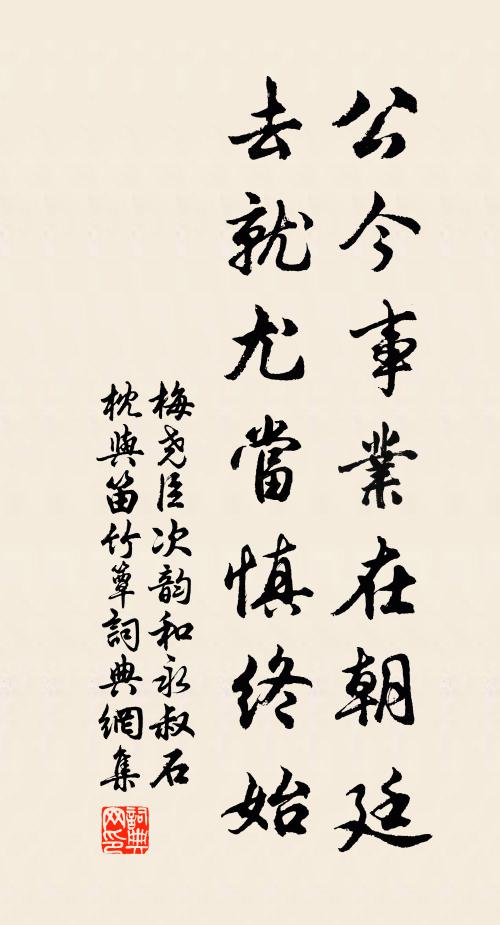 公今事業在朝廷
去就尤當慎終始
梅堯臣次韵和永叔石
枕與笛竹簟詞典網集
詞典
网印